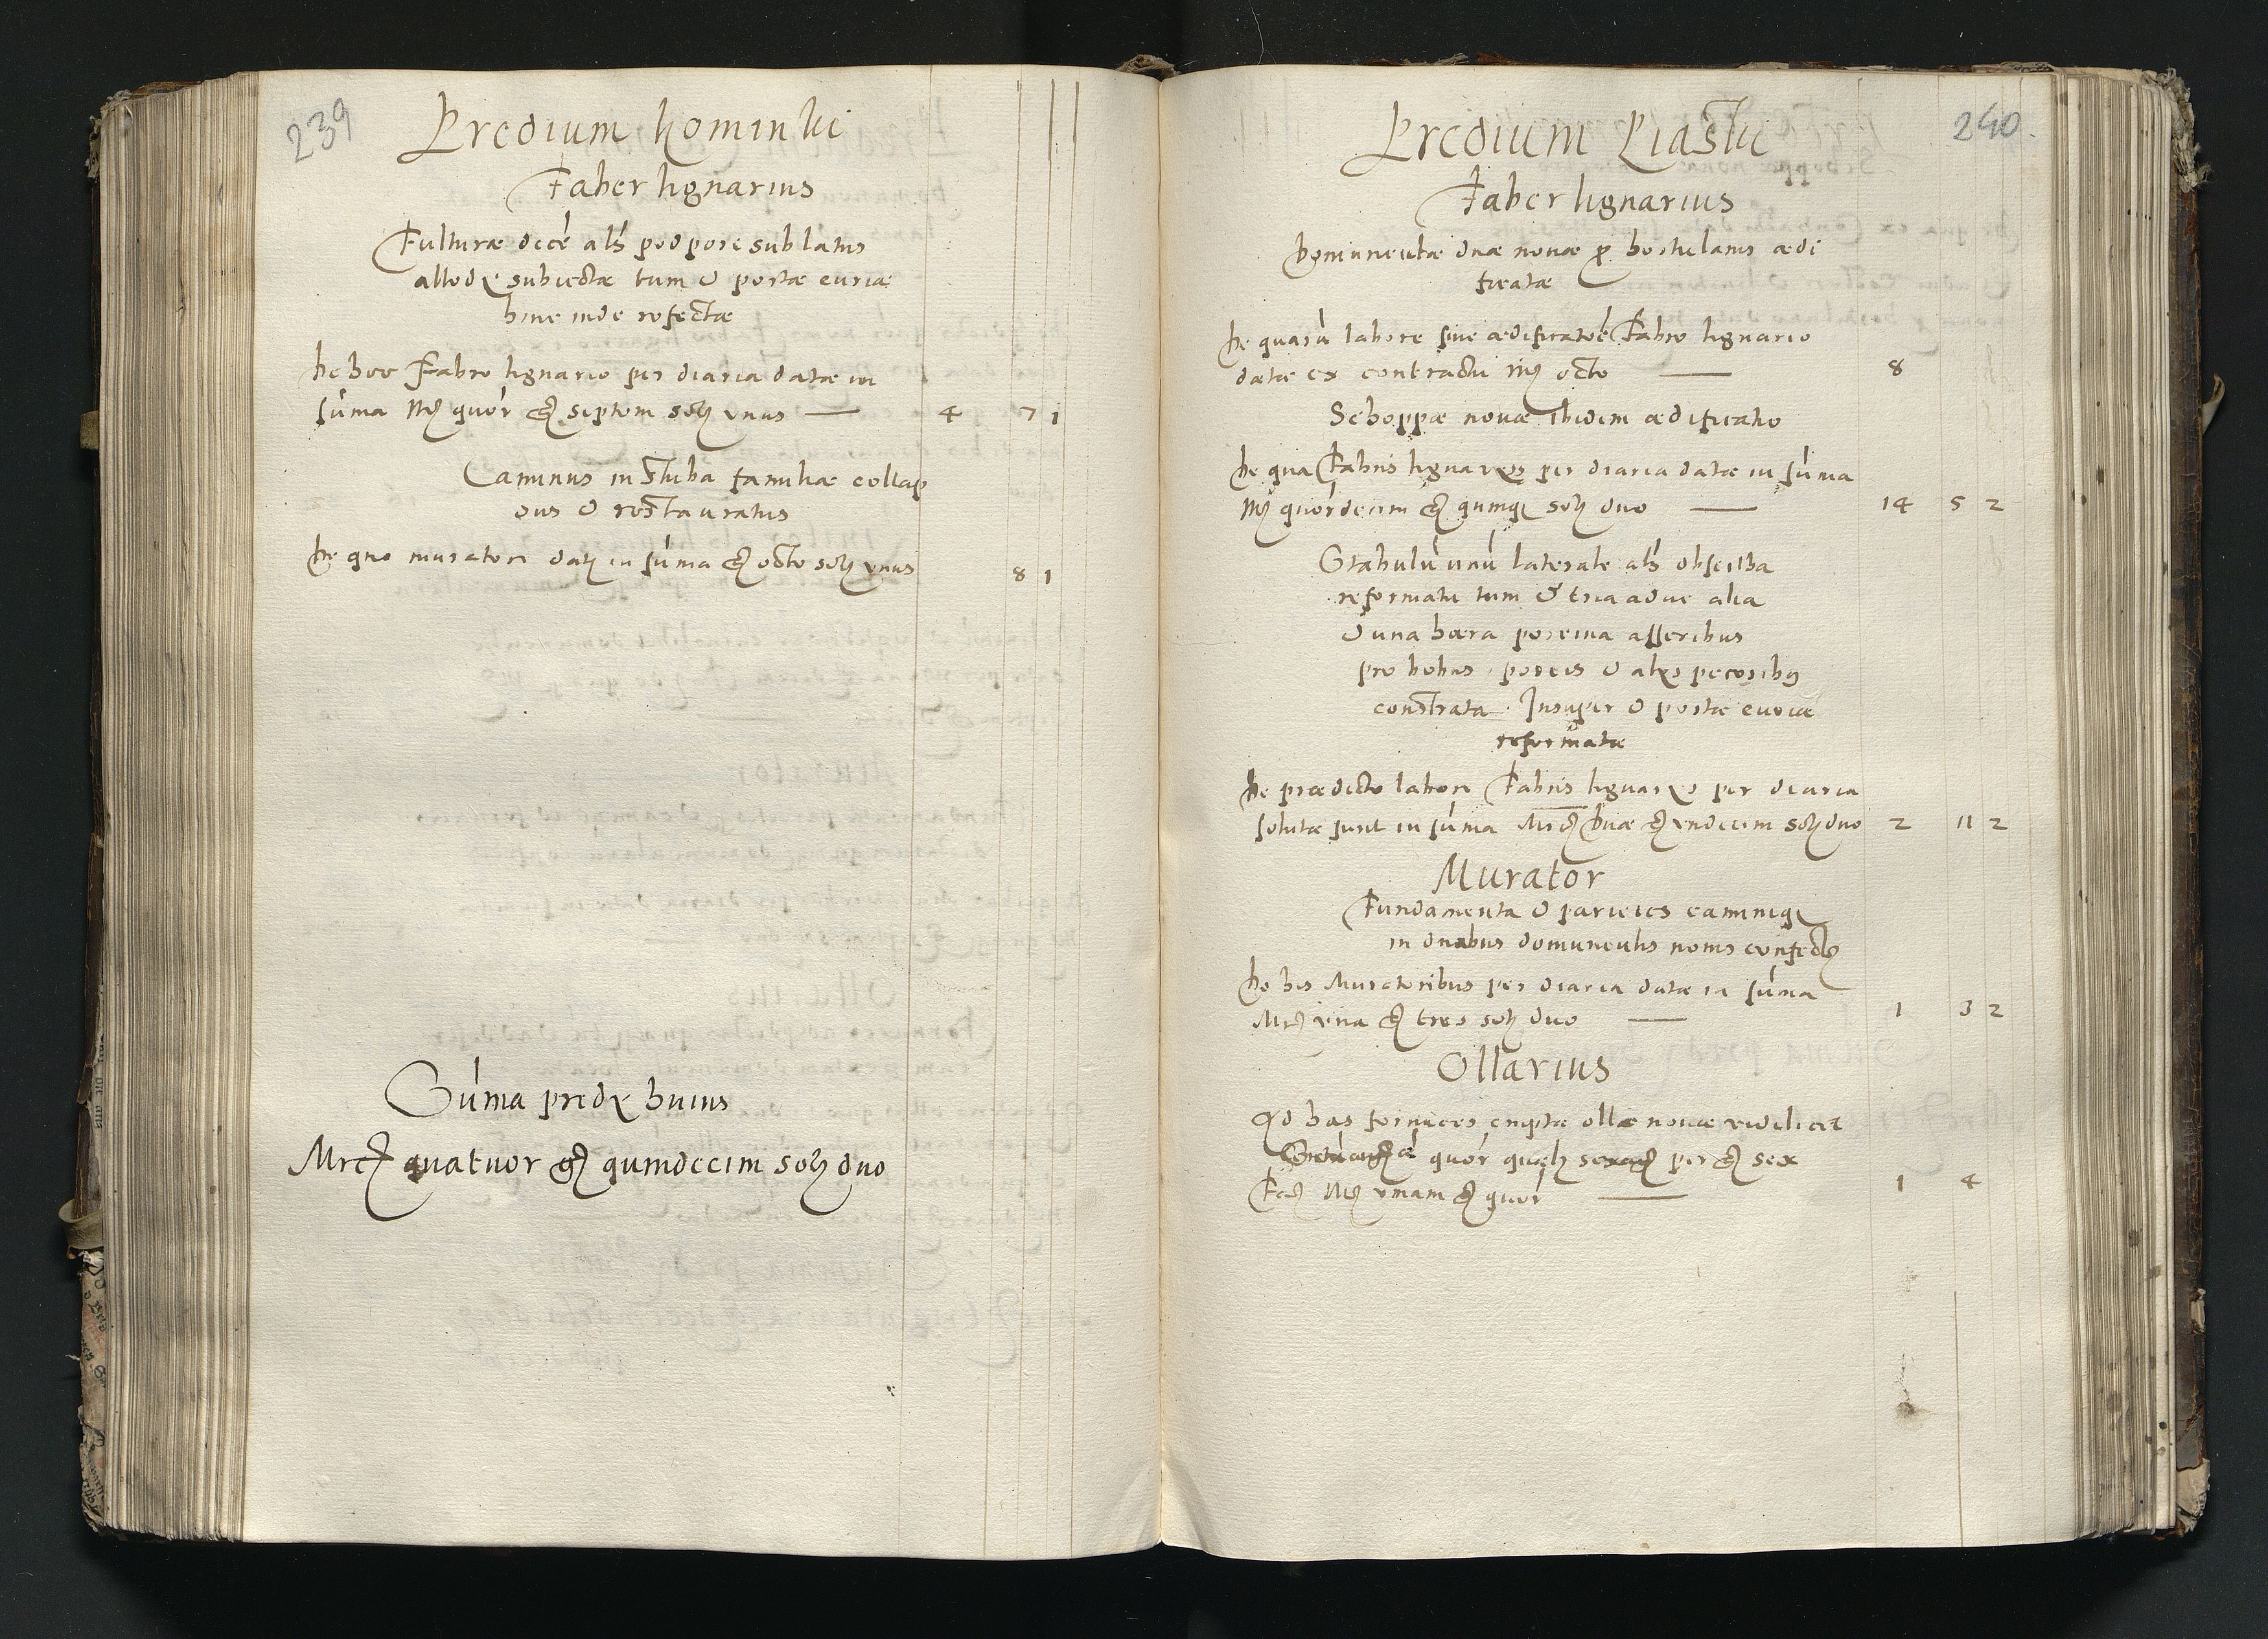 239
Predium kominki
Faber lignarius
Fulturæ decē als podpore sublatus
allody subiectæ tum & portæ curiæ
hinc inde refectæ
De hoc Fabro lignario per diaria datæ in
sūma Mrc quōr gr septem sol unus — 4 7 1
Caminus in stuba familiæ collap
sus & restauratus
De quo muratori dati in sūma gr octo sol unus 8 1
Sūma predy huius
Mrc quatuor gr quindecim sol duo
240.
Predium Piastki
Faber lignarius
Domunculæ duæ novæ p hortulanis ædi
ficatæ
De quarū labore sive ædificatōe Fabro lignario
datæ ex contractu Mrc octo — 8
Schoppæ novæ Ibidem ædificatio
De qua Fabris lignarys per diaria datæ in sūma
Mrc quōrdecim gr quinq sol duo — 14 5 2
Stabulū unū laterale als
reformatū tum & tria aduc alia
& una hara porcina asseribus
pro bobus porcis & alys pecoribq
constrata. Insuper & portæ curiæ
reformatæ
De prædicto labore Fabris lignarys per diaria
solutæ sunt in sūma Mrc duæ gr undecim sol duo 2 11 2
Murator
Fundamenta & parietes caminiq
in duabus domunculis novis confecti
De his Muratoribus per diaria datæ in sūma
Mrc una gr tres sol duo — 1 3 2
Ollarius
Ad has fornaces emptæ ollæ novæ videlicet
quōr quælz sexag per gr sex
Fac Mrc unam gr quōr — 1 4